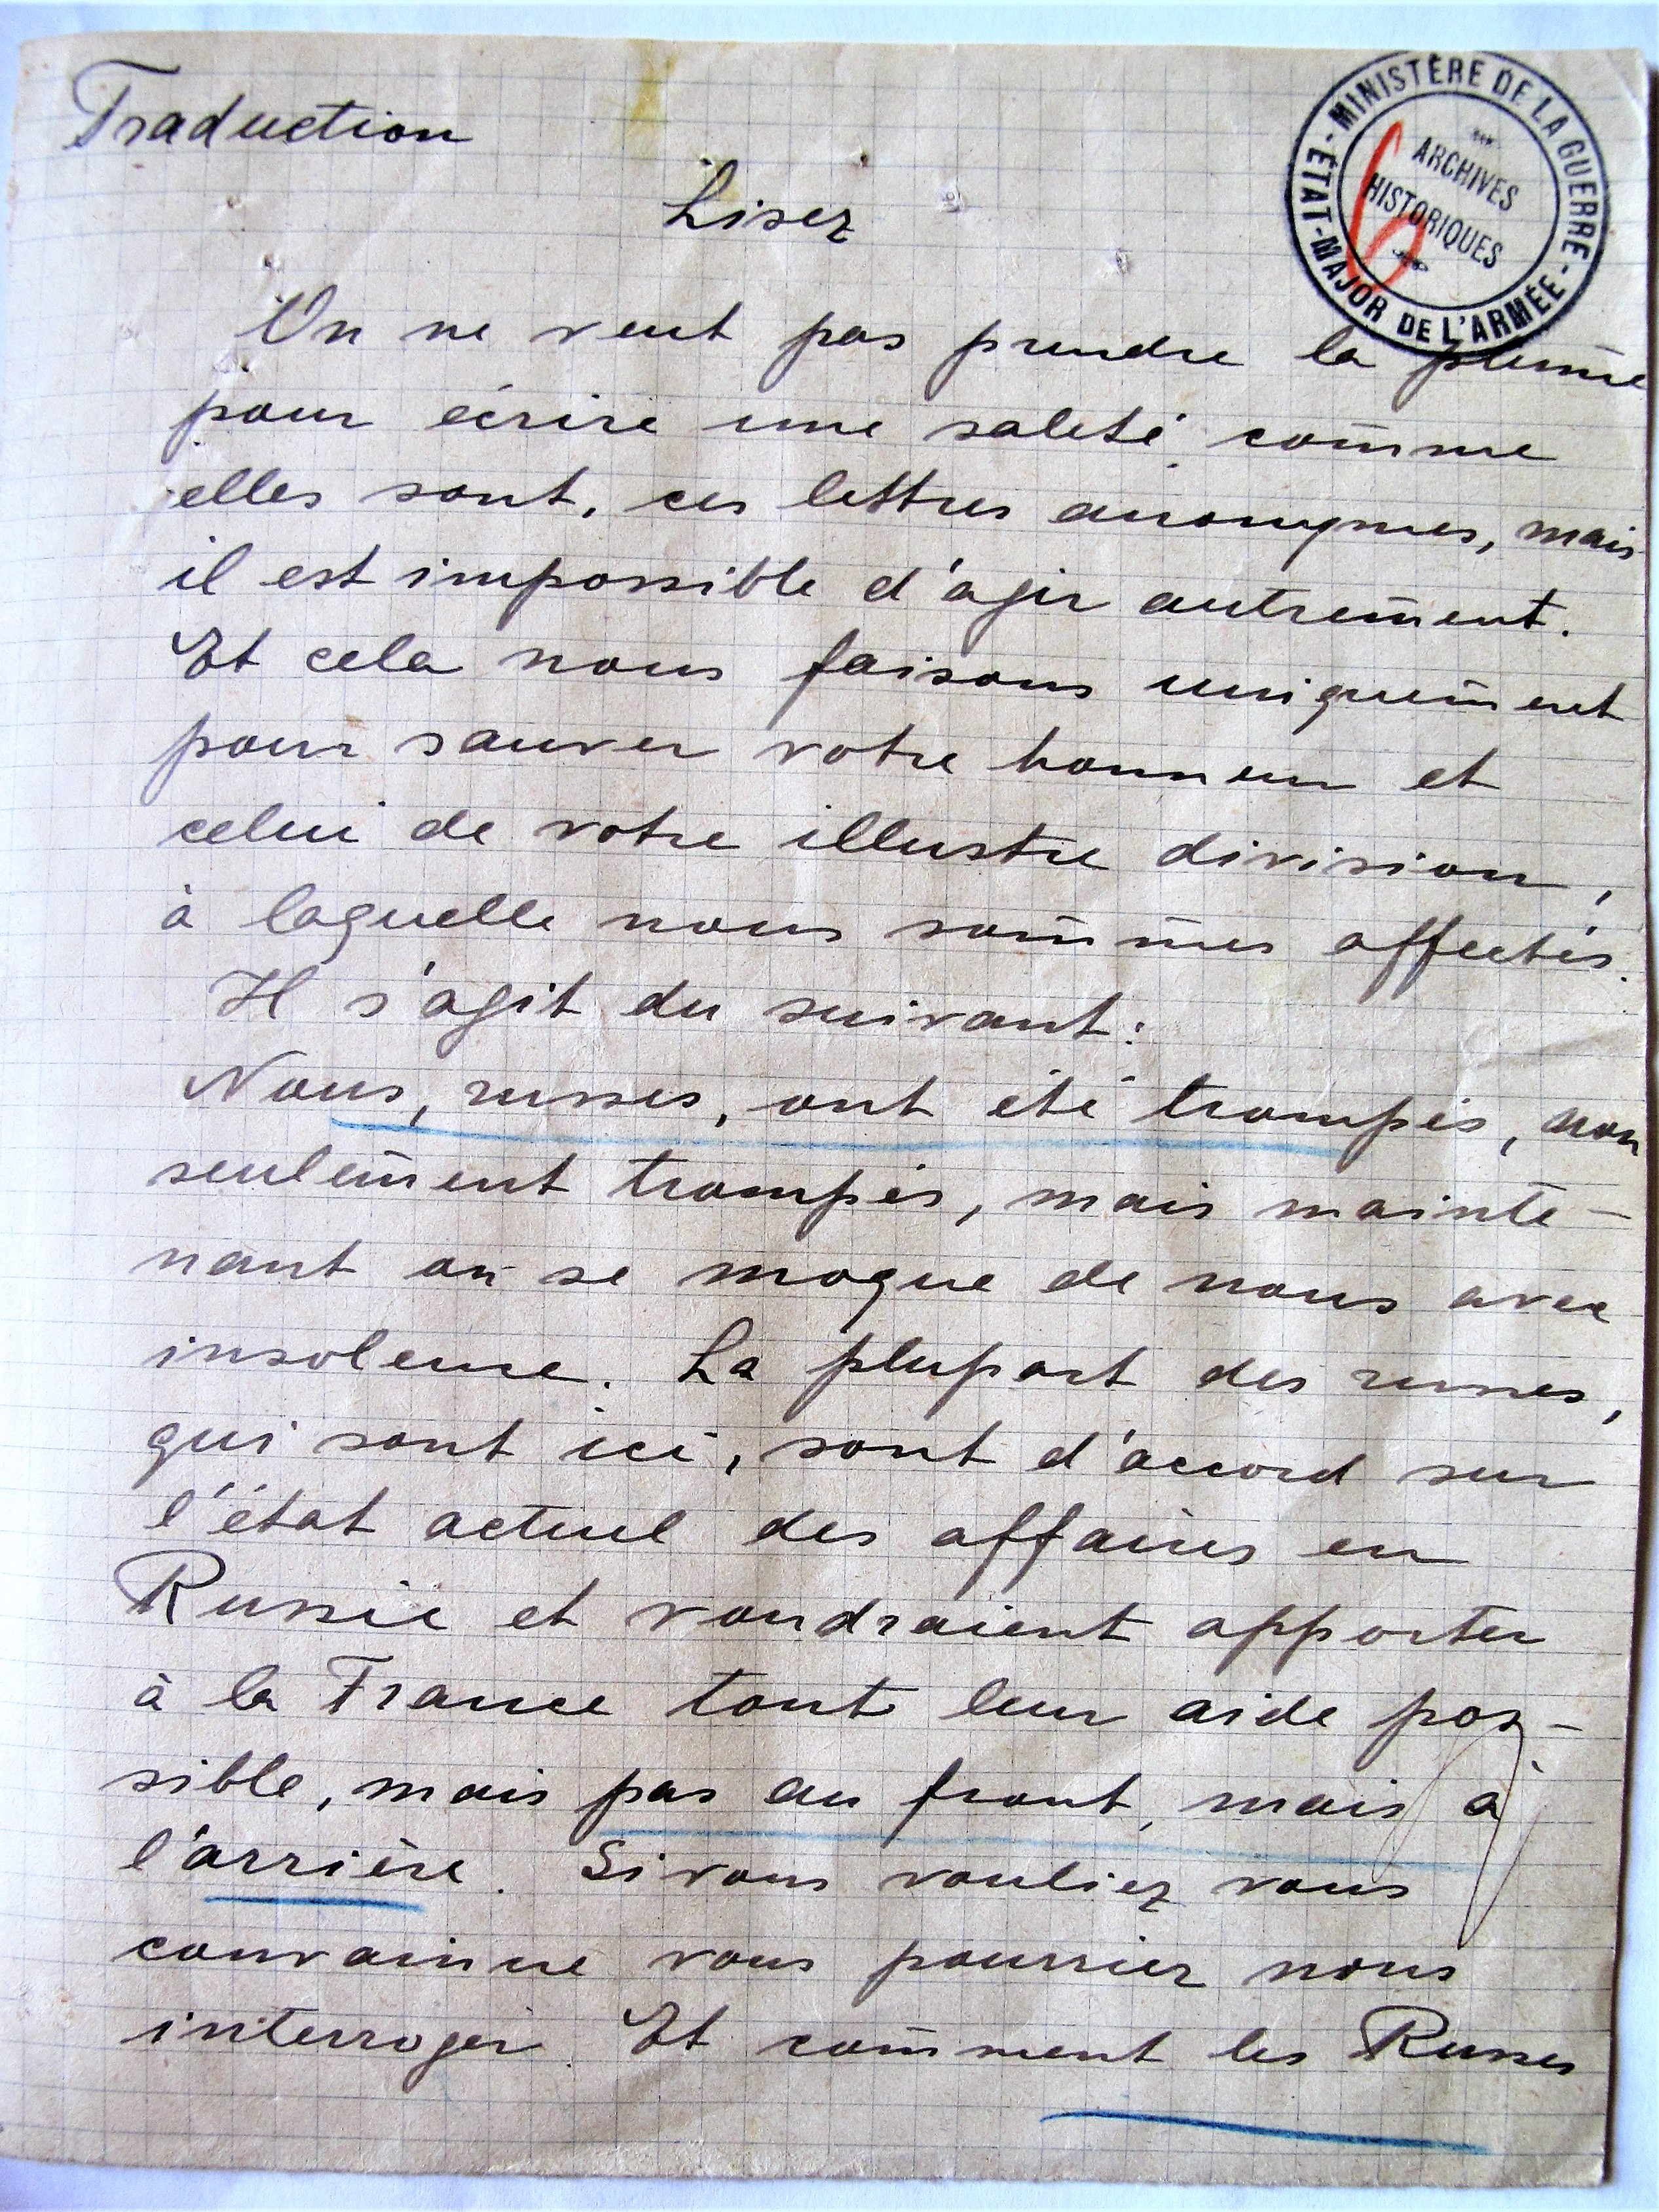 Traduction
MINISTÈRE DE LA GUERRE
ÉTAT-MAJOR DE L'ARMÉE
ARCHIVES
HISTORIQUES
6
Lisez
On ne veut pas prendre la plume
pour écrire une saleté comme
elles sont, ces lettres anonymes, mais
il est impossible d'agir autrement.
Et cela nous faisons uniquement
pour sauver votre honneur et
celui de votre illustre division,
à laquelle nous sommes affectés.
Il s'agit du suivant:
Nous, russes, ont été trompés, non
seulement trompés, mais mainte-
nant on se moque de nous avec
insolence. La plupart des russes,
qui sont ici, sont d'accord sur
l'état actuel des affaires en
Russie et voudraient apporter
à la France tout leur aide pos-
sible, mais pas au front, mais à
l'arrière. Si vous vouliez vous
convaincre vous pourriez nous
interroger. Et comment les Russes